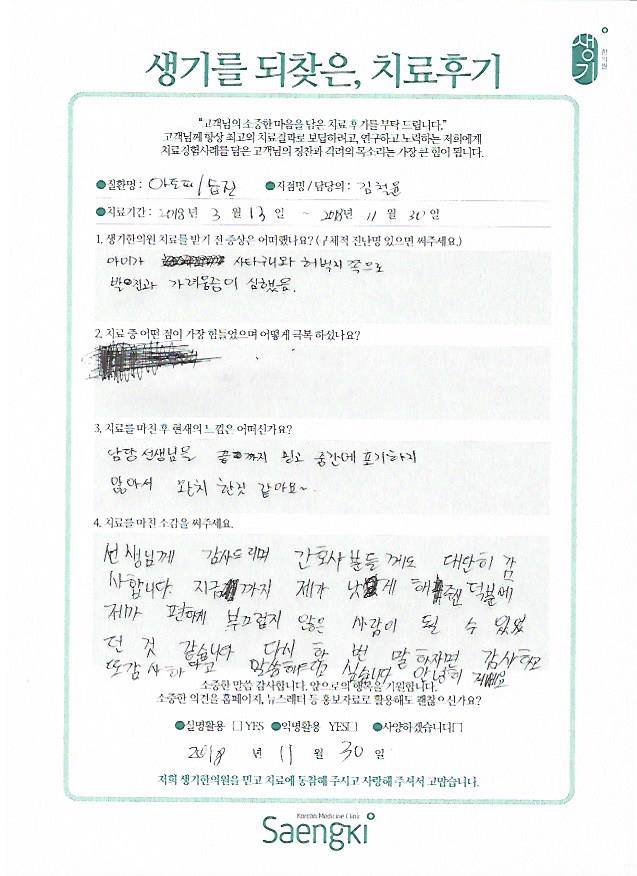 생기
한의원
생기를 되찾은, 치료후기
"고객님의 소중한 마음을 담은 치료 후기를 부탁 드립니다."
고객님께 항상 최고의 치료결과로 보답하려고, 연구하고 노력하는 저희에게
치료경험사례를 담은 고객님의 칭찬과 격려의 목소리는 가장 큰 힘이 됩니다.
질환명 : 아토피/습진 지점명/담당의 : 김철윤
치료기간 : 2018년 3월 13일 ~ 2018년 11월 30일
1. 생기한의원 치료를 받기 전 증상은 어떠했나요? (구체적 진단명 있으면 써주세요.)
아이가 사타구니와 허벅지 쪽으로
발진과 가려움증이 심했음.
2. 치료 중 어떤 점이 가장 힘들었으며 어떻게 극복 하셨나요?
3. 치료를 마친 후 현재의 느낌은 어떠신가요?
담당 선생님을 끝까지 믿고 중간에 포기하지
않아서 완치 한것 같아요~
4. 치료를 마친 소감을 써주세요.
선생님께 감사드리며 간호사분들께도 대단히 감
사합니다. 지금까지 제가 낫게 해준 덕분에
제가 편하게 부끄럽지 않은 사람이 될 수 있었
던 것 같습니다 다시 한 번 말하자면 감사하고
또 감사하다고 말씀해드리고 싶습니다 안녕히 계세요
소중한 말씀 감사합니다. 앞으로의 행복을 기원합니다.
소중한 의견을 홈페이지, 뉴스레터 등 홍보자료로 활용해도 괜찮으신가요?
실명활용 □ YES 익명활용 YES□ 사양하겠습니다□
2018 년 11 월 30 일
저희 생기한의원을 믿고 치료에 동참해 주시고 사랑해 주셔서 고맙습니다.
Korean Medicine Clinic
Saengki